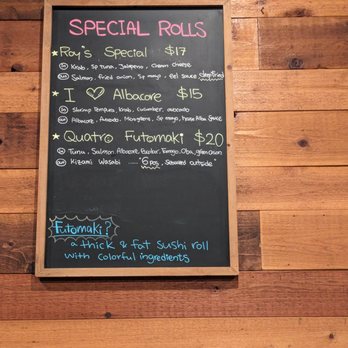 SPECIAL ROLLS
Roy's Special $17
In Krab, Sp Tuna, Jalapeno, Cream Cheese
Out Salmon, fried onion, Sp mayo, Eel sauce deep fried
I ♡ Albacore $15
In Shrimp Tempura, Krab, Cucumber, avocado
Out Albacore, Avocado, Micro greens, Sp mayo, House Alba Sauce
Quatro Futomaki $20
In Tuna, Salmon, Albacore, Escolar, Tamago, Oba, green onion
Out Kizami Wasabi "6 pcs, Seaweed outside"
Futomaki?
a thick & fat sushi roll
with colorful ingredients